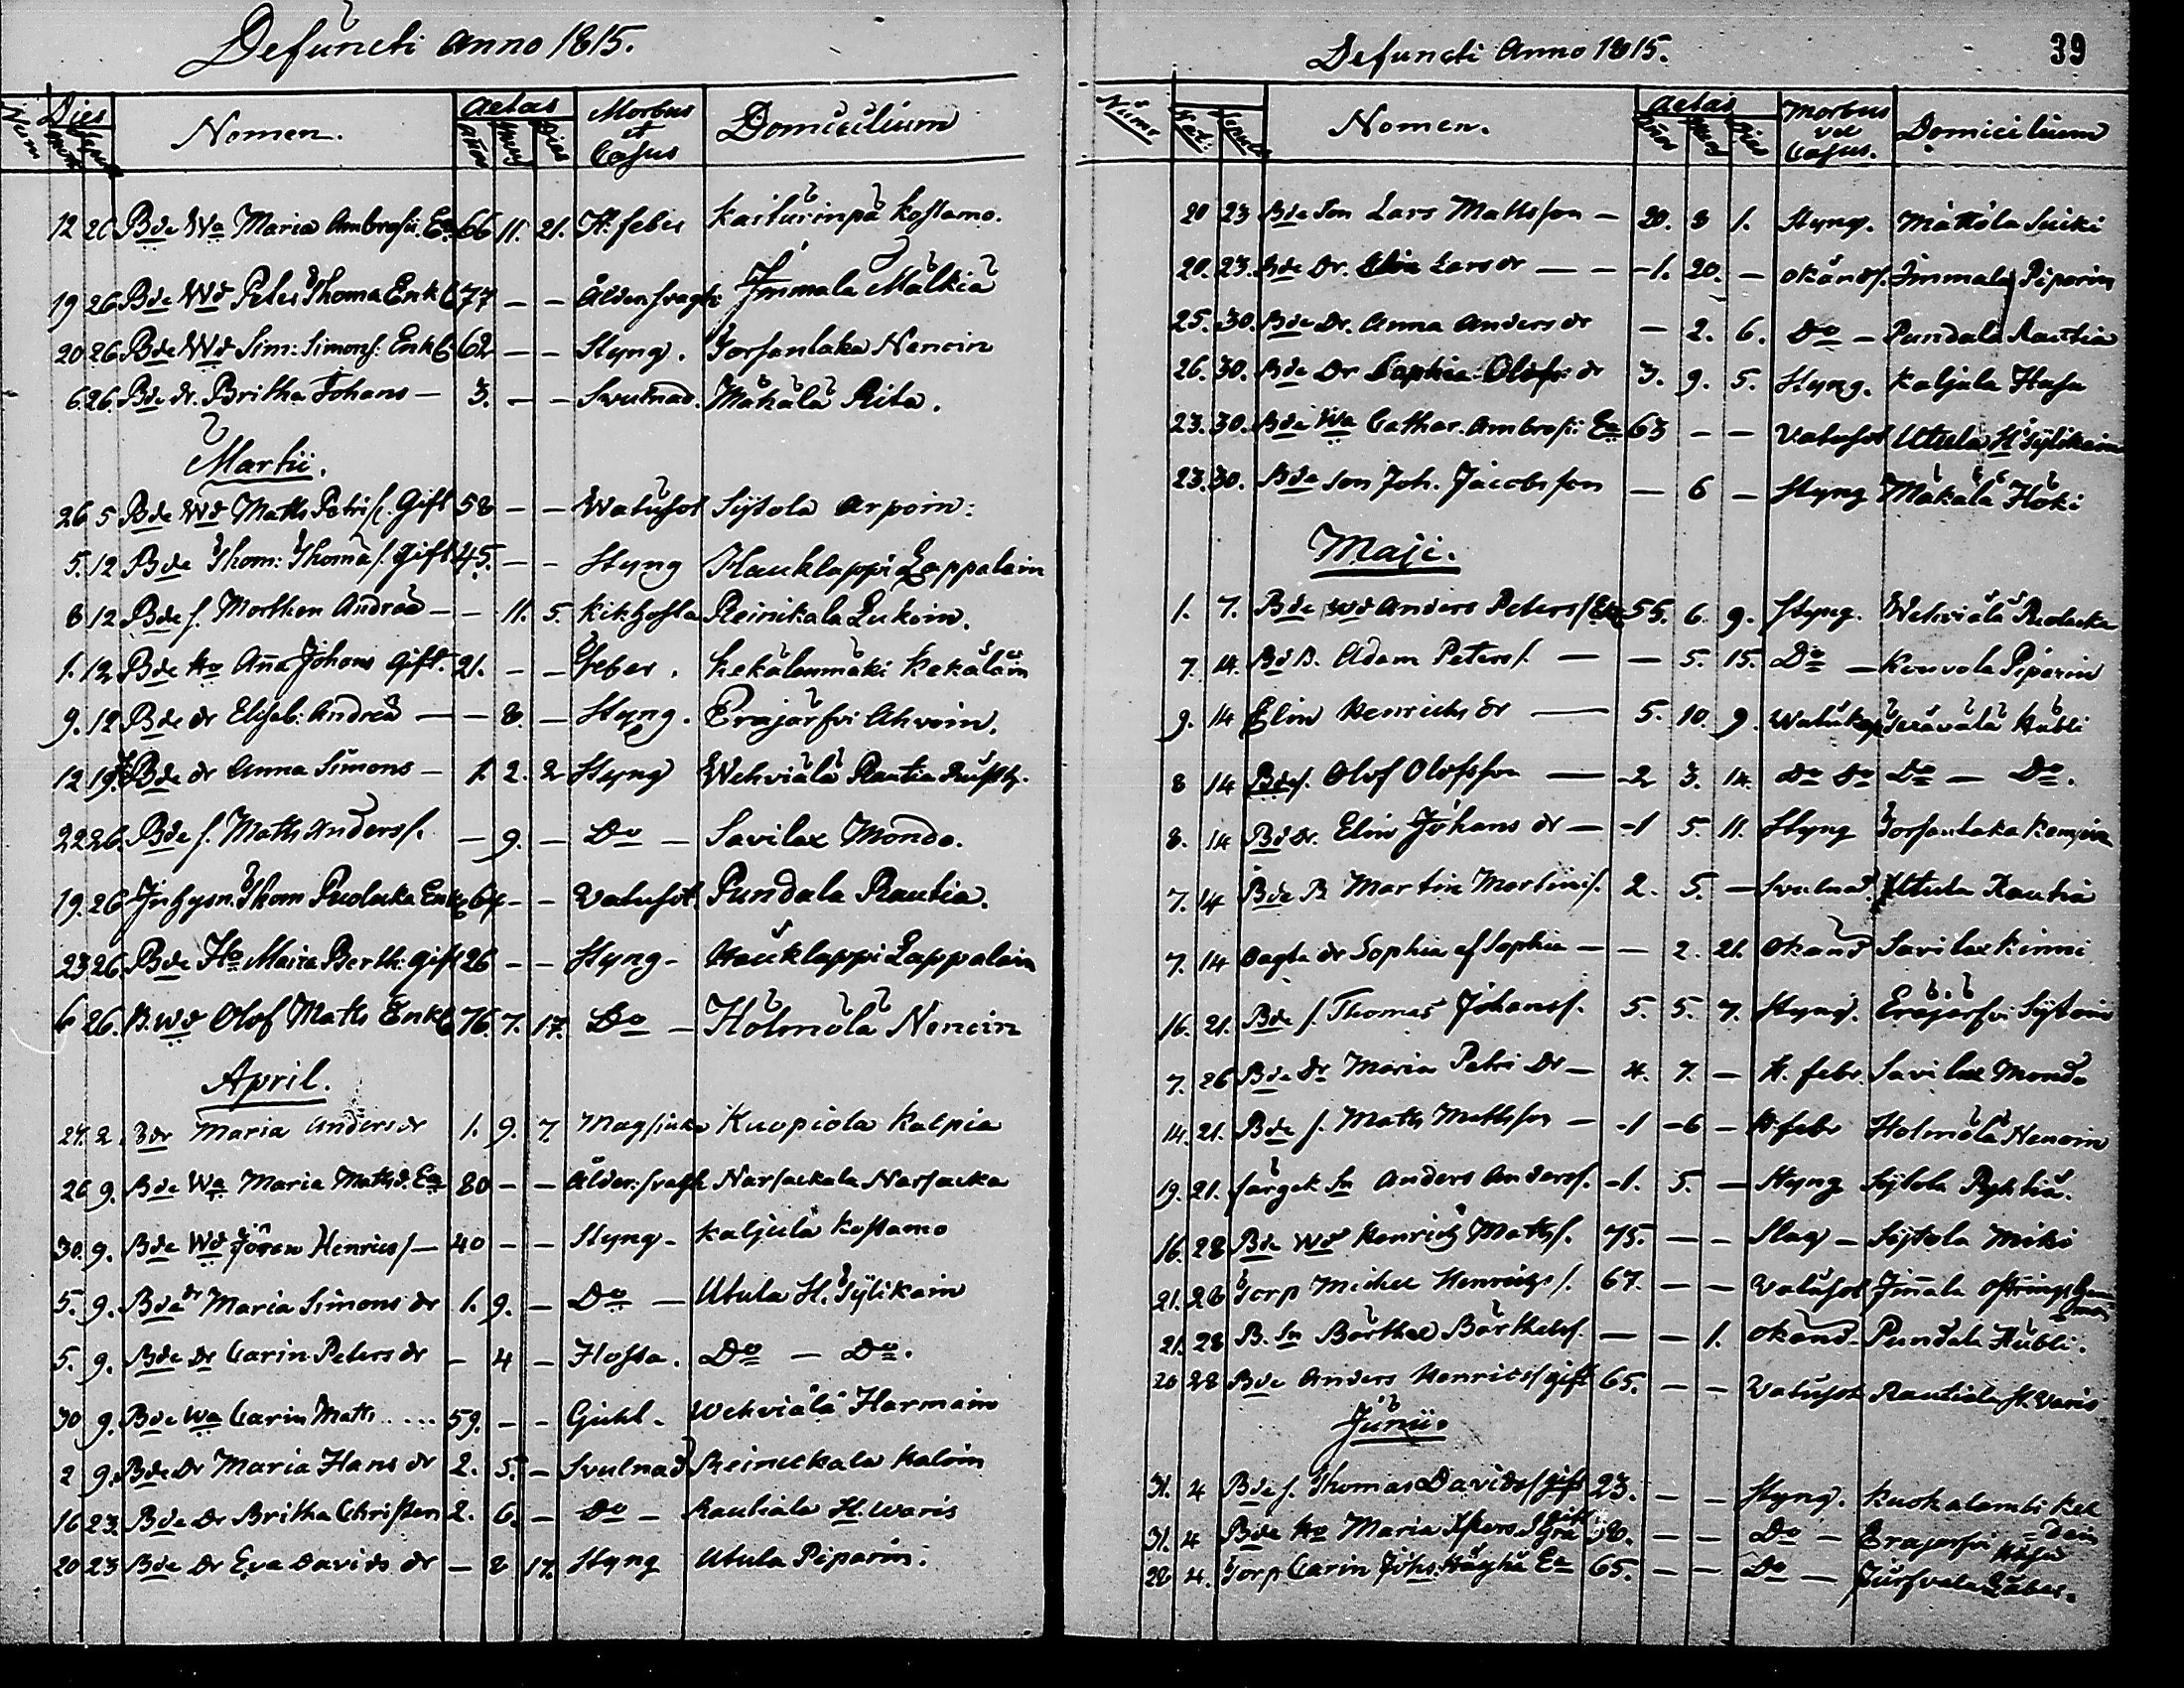 Defuncti anno 1815.
Num Dies Nomen. aetas Morbus et Casus Domicilium
Mort. Sepul. años Mens Dies
12 26 Bde Wa Maria Ambrosii. Ea 66 11. 21. H. feber Kaiturinpä Kostamo.
19 26 Bde Wd Peter Thoma Enkl 77 — — Ålderssvaghe Immala Mälkiä
20 26 Bde Wd Sim: Simons: Enkl 62 — — Styng. Torsanlaka Nenoin
6. 26. Bde dr. Britha Johans — 3. — — Svulnad. Mäkälä Rita.
Martii.
26 5 Bde Wd Matts Petri s. Gift 58 — — Watusot Sytola Arpoin:
5. 12 Bde Thom: Thomä s. gift 45. — — Styng Hauklappi Lappalain
8 12 Bde s. Morthen Andreä — — 11. 5. Kikhosta Reinikala Lukoin.
1. 12 Bde Ho Aña Johans Gift. 21. — — Feber. Kekälenmäki Kekäläin
9. 12 Bde dr Elisab: Andreä — — 8. — Styng. Eräjärfvi Ahvoin.
12 19 Bde dr Anna Simons — 1. 2. 2 Styng Wehviälä Rautia Rusth.
22 26. Bde s. Matts Anders s. — 9. — Do — Savilax Mondo.
19. 26 Inhysn. Thom Puolacka Enkl 64 — — Vatusot. Pundala Rautia.
23 26. Bde Ho Maria Berth: gift 26 — — Styng — Hauklappi Lappalain
6 26. B. Wd Olof Matts Enkl 76. 7. 17. Do — Hölmölä Nenoin
April.
27. 2. Bdr Maria Anders dr 1. 9. 7. Magsiuka Kuopiola Kalpia
26 9. Bde Wa Maria Mattsd. Ea 80 — — Ålder: svagh Narsackala Narsacka
30. 9. Bde Wd Jören Henrics s — 40 — — Styng — Kaljula Kostamo
5. 9. Bde dr Maria Simons dr 1. 9. — Do — Utula H. Tylikain
5. 9. Bde Dr Carin Peters dr — 4 — Hosta. Do — Do.
30 9. Bde Wa Carin Matts .... 59. — — Gickt — Wehviälä Harmain
2 9. Bde Dr Maria Hans dr 2. 5. — Svulnad Reinickala Kaloin
16 23. Bde Dr Britha Christen 2. 6. — Do — Rautiala H. Waris
20 23 Bde Dr Eva Davids dr — 8 17. Styng Utula Piparin.
Defuncti Anno 1815. 39
Num Nat: Sepult Nomen. aetas Morbus vel Casus. Domicilium
años Mens Dies
20 23 Bde Son Lars Mattsson — 20. 3 1. Styng. Mättölä Suiki
20. 23. Bde Dr. Elin Lars dr — — -1. 20. — okänds. Immala Piparin
25. 30. Bde Dr. Anna Anders dr — 2. 6. Do — Pundala Rautia
26. 30. Bde Dr Sophia Olofs dr 3. 9. 5. Styng. Kaljula Hasu
23. 30. Bde Wa Cathar. Ambrosii Ea 63 — — Vatusot Utula H Tylikain
23. 30. Bde Son Joh. Jacobsson — 6 — Styng Mäkälä Höki
Maji.
1. 7. Bde Wd Anders Peters s Enk 55. 6. 9. Styng. Wehviälä Puolacka
7. 14. Bd B. Adam Peters s. — — 5. 15. Do — Konvola Piparin
9. 14 Elin Henrichs dr — 5. 10. 9. Watukop Terävälä Hubli
8 14 Bde s. Olof Olofsson — -2 3. 14. Do Do Do — Do.
8. 14 Bd Dr. Elin Johans dr — -1 5. 11. Styng Torsanlaka
7. 14 Bde B Martin Martini s. 2. 5. — Svulnad. Utula Rautia
7. 14 Oägta dr Sophia af Sophia — — 2. 21. Okänd Savilax Kinni
16. 21. Bde s. Thomas Johans s. 5. 5. 7. Styng. Eräjärfvi Sytoin
7. 26 Bde Dr Maria Petri Dr — 4. 7. — H. febr. Savilax Mondo
14. 21. Bde s. Matts Mattsson — -1 -6 — H. febr Holmölä Nenoin
19. 21. Särgek Sn Anders Anders s. -1. 5. — Styng Sytola Pyhtiä.
16. 28 Bde Wd Henrich Matts s. 75. — — Slag — Sytola Miki
21. 28 Torp Michel Henrichs s. 67. — — Vatusot Iñala
21. 28 B. Sn Barthel Barthels s. — — 1. okänd — Pundala Hubli.
20 28 Bde Anders Henrics s gift 65. — — Vatusot Rautiala H. Varis
Junii.
31. 4 Bde s. Thomas Davids s gift 23. — — Styng. Kuokalambi Kekäläin
31. 4 Bde Ho Maria 30. — — Do — Eräjärfvi Hasu
28 4. Torp Carin Joh: Ea 65. — — Do —